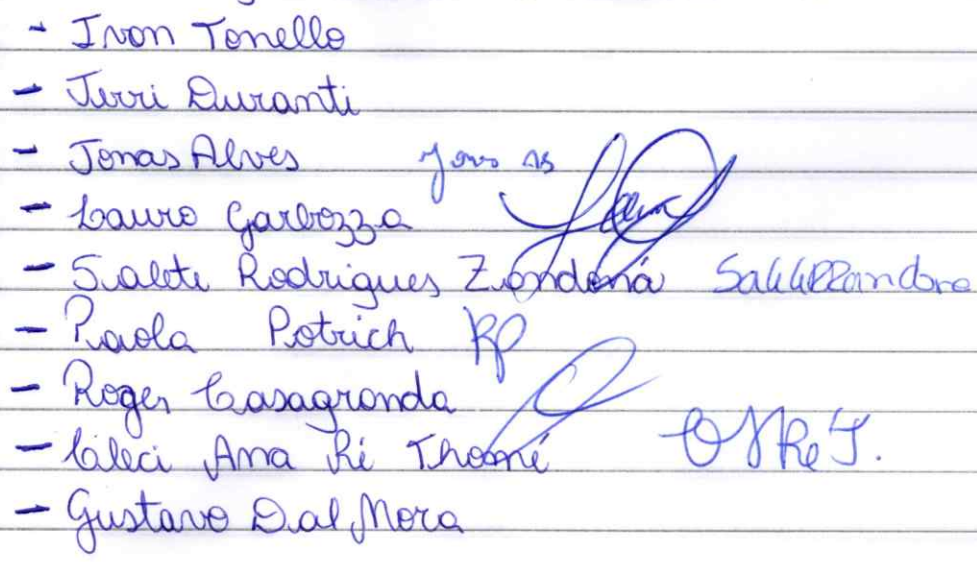 - Ivon Tonello
- Jerri Duranti
- Jonas Alves
- Lauro Garbozza
- Salete Rodrigues Zondoná
- Paola Potrich RP
- Roger Casagronda
- Cileci Ana Ré Thomé
- Gustavo Dal Mora